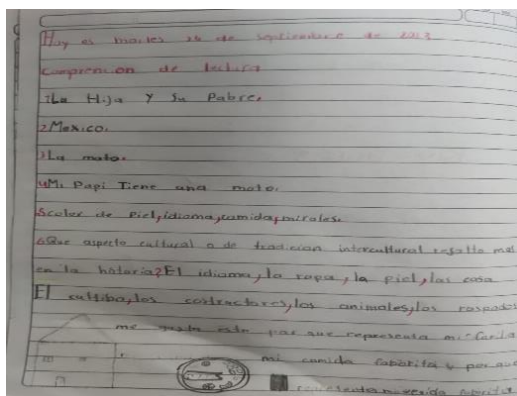 Hoy es martes 26 de septiembre de 2023
Comprencion de lectura
1La Hija y Su Pabre.
2Mexico.
3La moto.
4Mi Papi Tiene una moto.
5color de Piel, idioma, camida, mirales.
6Que aspecto cultural o de tradicion intercultural resalta mas
en la hiatoria? El idioma, la ropa, la piel, las cosa
El cultibo, los contractores, los animales, los raspados
me gusta esto por que representa mi
mi comida faborita y por que
representa mi